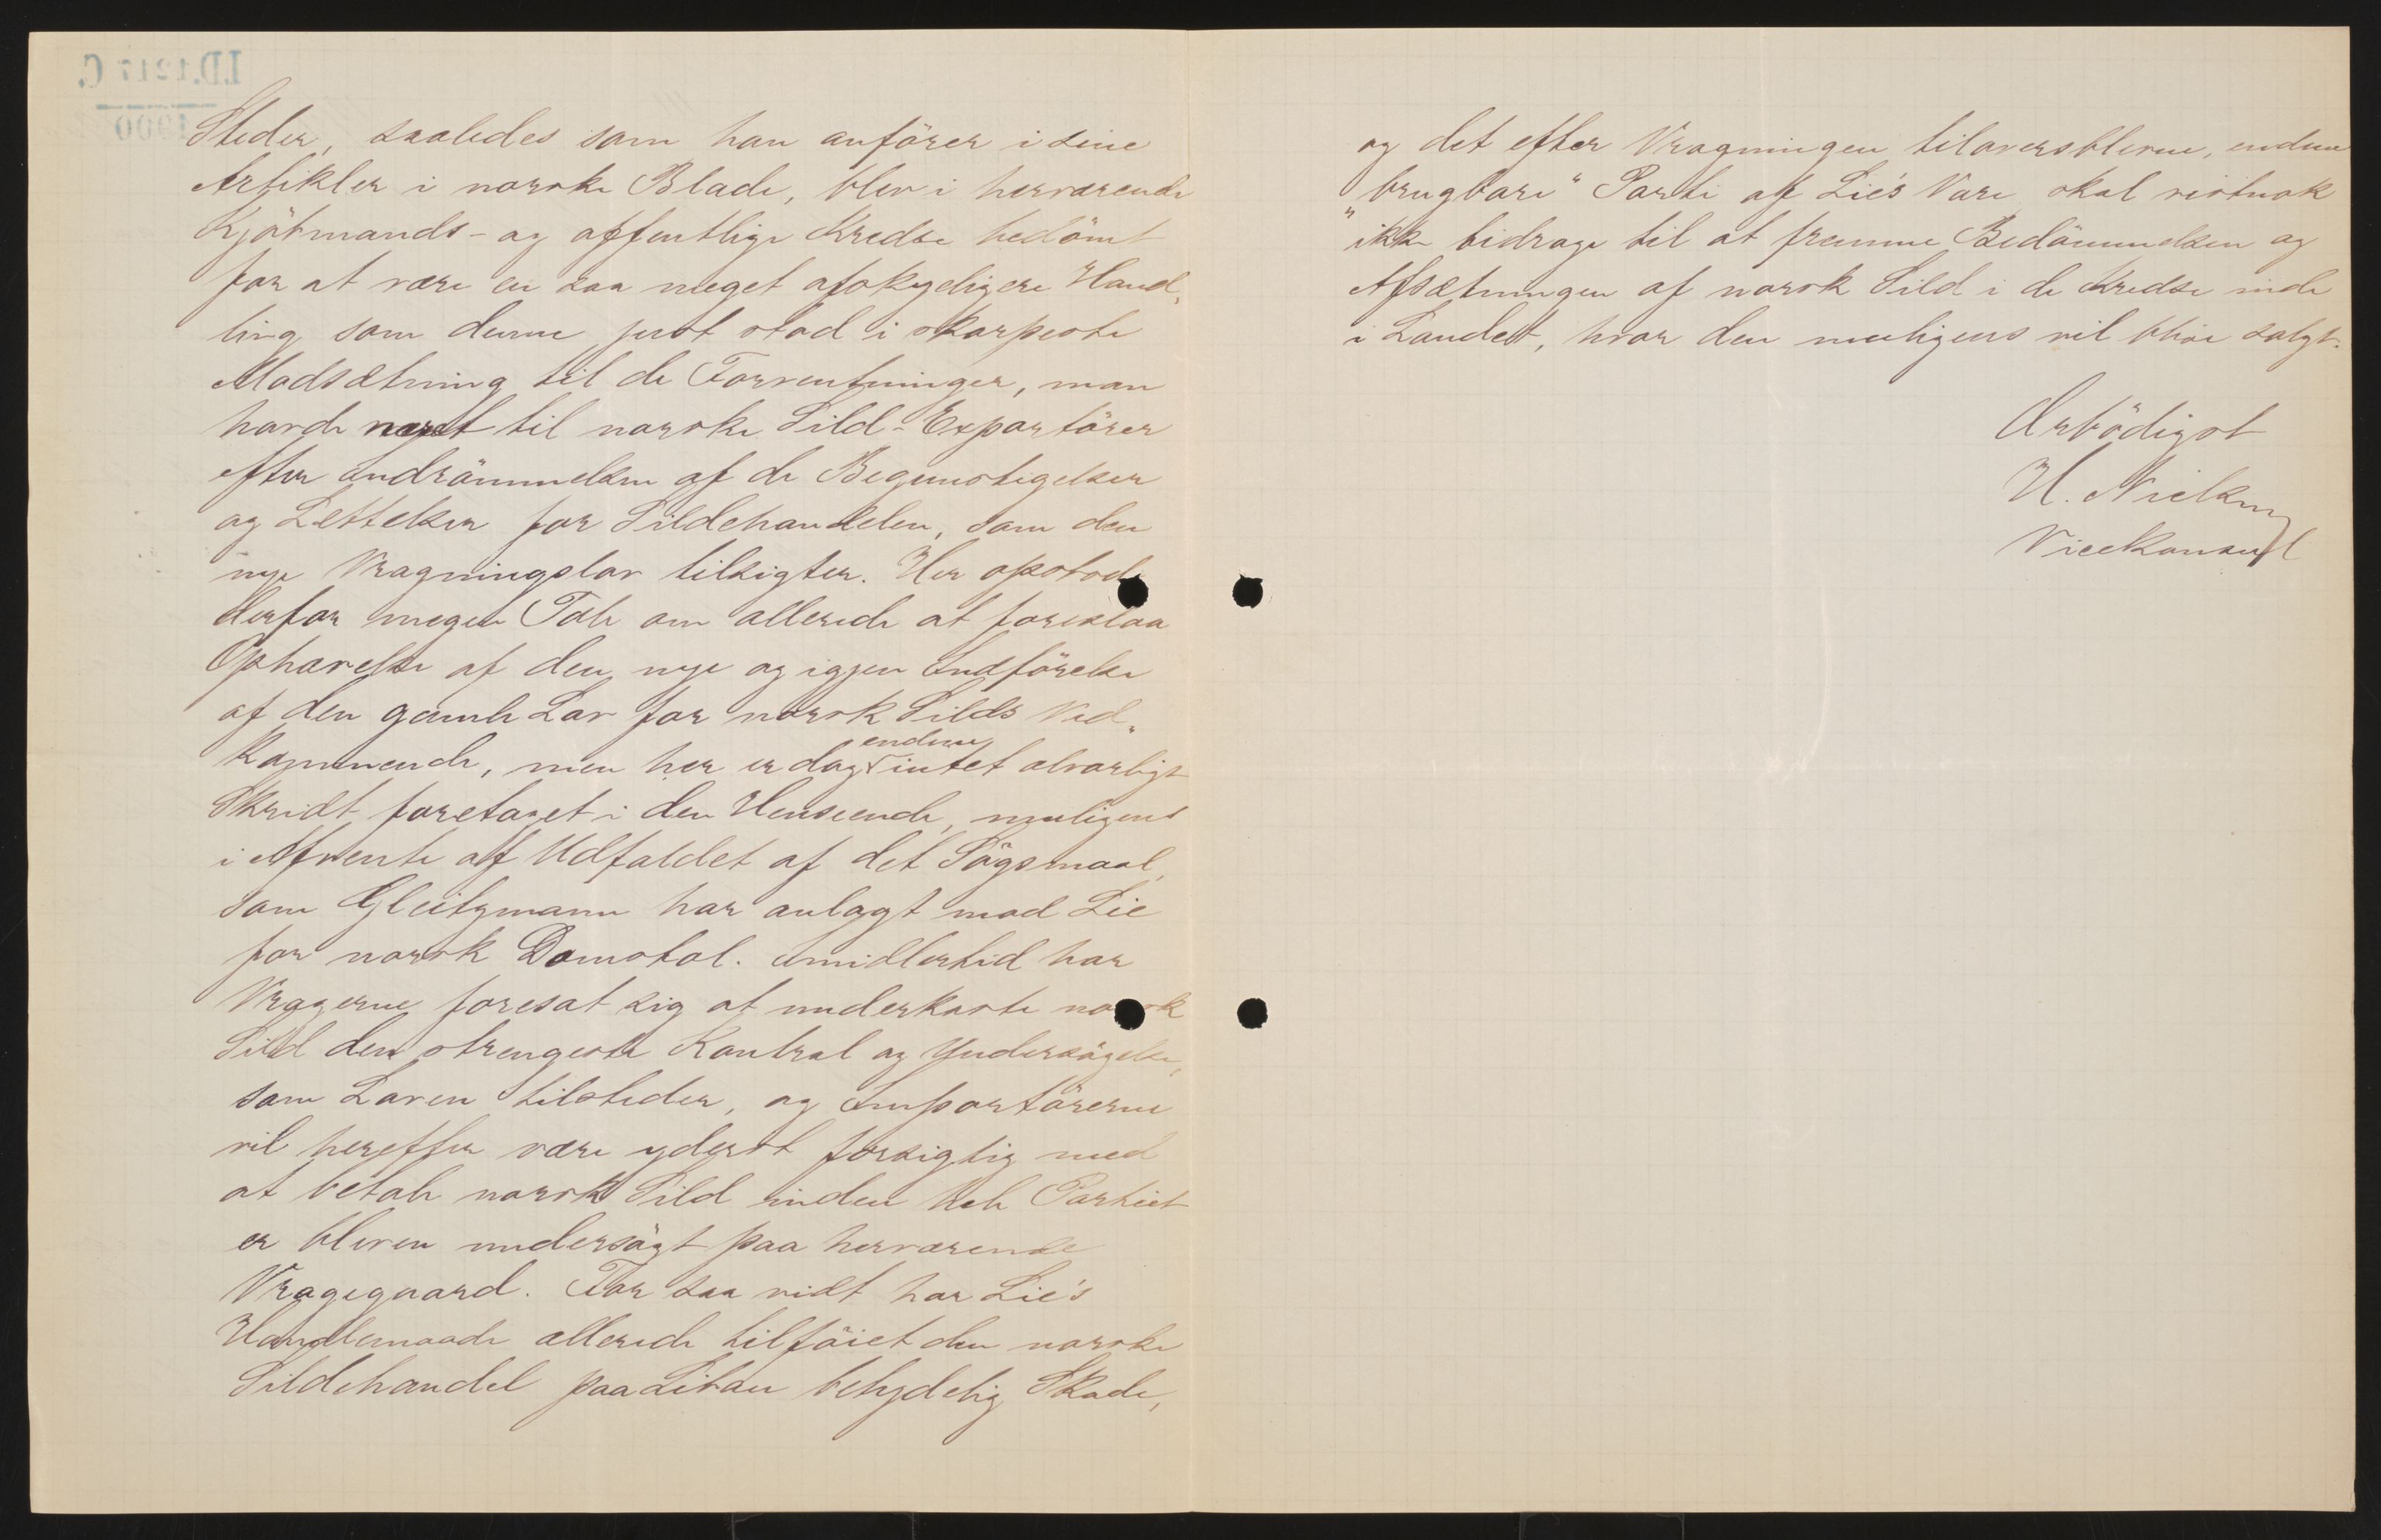 I.D.1217 C.
1900
Steder, saaledes som han anförer i sine
Artikler i norske Blade, blev i herværende
Kjöbmands- og offentlige Kredse bedömt
for at være en saa meget afskyeligere Hand„
ling som denne just stod i skarpeste
Modsætning til de Forventninger, man
havde næret til norske Sild-Exportörer
efter indrömmelsen af de Begunstigelser
og Lettelser for Sildehandelen, som den
nye Vragningslov tilsigter. Her opstod
derfor megen Tale om allerede at foreslaa
Ophævelse af den nye og igjen Indförelse
af den gamle Lov for norsk Silds Ved„
kommende, men her er dog endnu intet alvorligt
Skridt foretaget i den Henseende, muligens
i Afvente af Udfaldet af det Sögsmaal,
som Gleitzmann har anlagt mod Lie
for norsk Domstol. Imidlertid har
Vragerne foresat sig at underkaste norsk
Sild den strengeste Kontrol og Undersögelse,
som Loven tilsteder, og Importörerne
vil herefter være yderst forsigtig med
at betale norsk Sild inden hele Partiet
er bleven undersögt paa herværende
Vragegaard. For saa vidt har Lie's
Handlemaade allerede tilföiet den norske
Sildehandel paa Libau betydelig Skade,
og det efter Vragningen tiloversblevne, endnu
„brugbare" Parti af Lie's Vare skal vistnok
ikke bidrage til at fremme Bedömmelsen og
Afsætningen af norsk Sild i de Kredse inde
i Landet, hvor den muligens vil blive solgt.
Ærbödigst
H. Nielsen
Vicekonsul